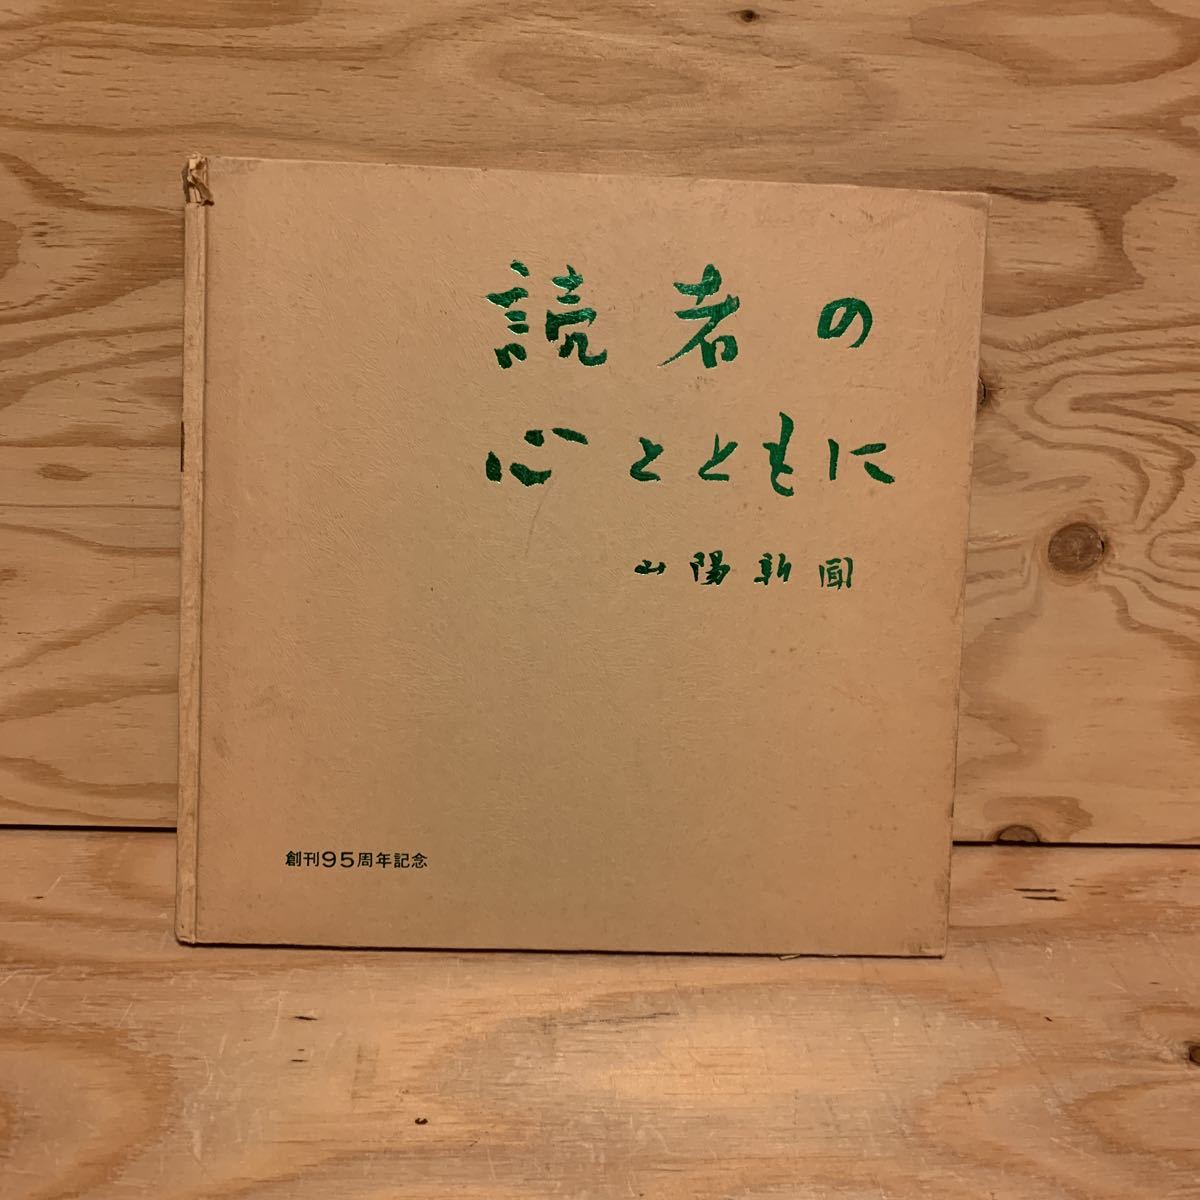 読者の
心とともに
山陽新聞
創刊95周年記念